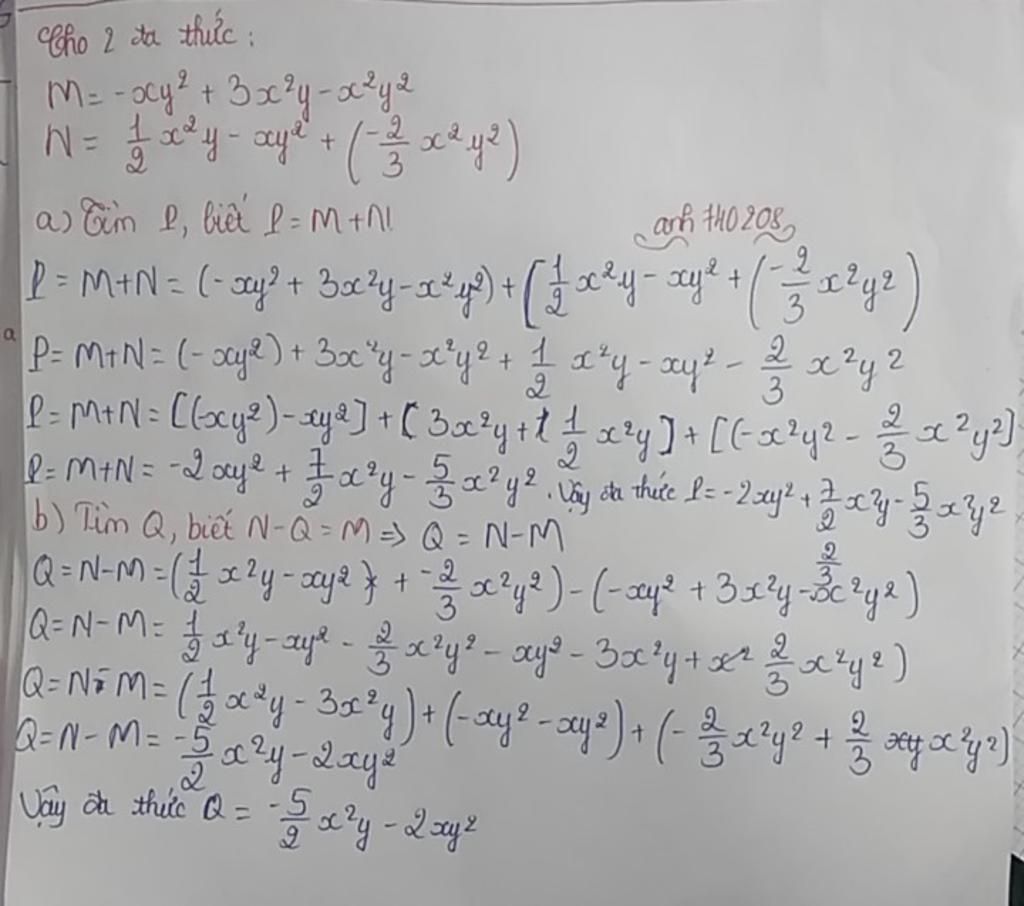 Cho 2 đa thức:
M = -xy² + 3x²y - x²y²
N = 1/2 x²y - xy² + (-2/3 x²y²)
a) Tìm P, biết P = M+N!
anh 7410208
P = M+N = (-xy² + 3x²y - x²y²) + [1/2 x²y - xy² + (-2/3 x²y²)
P = M+N = (-xy²) + 3x²y - x²y² + 1/2 x²y - xy² - 2/3 x²y²
P = M+N = [(-xy²) - xy²] + [3x²y + 1/2 x²y] + [(-x²y² - 2/3 x²y²]
P = M+N = -2xy² + 7/2 x²y - 5/3 x²y². Vậy đa thức P = -2xy² + 7/2 x²y - 5/3 x²y²
b) Tìm Q, biết N - Q = M => Q = N - M
Q = N - M = (1/2 x²y - xy² + -2/3 x²y²) - (-xy² + 3x²y - 2/3 x²y²)
Q = N - M = 1/2 x²y - xy² - 2/3 x²y² - xy² - 3x²y + x² 2/3 x²y²)
Q = N - M = (1/2 x²y - 3x²y) + (-xy² - xy²) + (-2/3 x²y² + 2/3 xy x²y²)
Q = N - M = -5/2 x²y - 2xy²
Vậy đa thức Q = -5/2 x²y - 2xy²